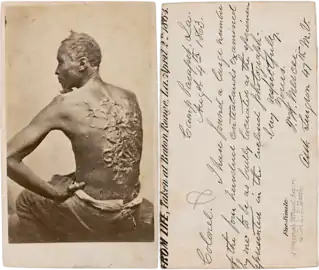 FROM LIFE, Taken at Baton Rouge, La., April 2d, 1863.
Camp Parapet, La.
Aug 4th 1863.
Colonel.
I have found a large number
of the four hundred contrabands examined
by me to be as badly lacerated as the specimen
represented in the enclosed photograph.
Very respectfully
Yours
J.W. Mercer
Asst Surgeon 47th M.V.
Fac-Simile.